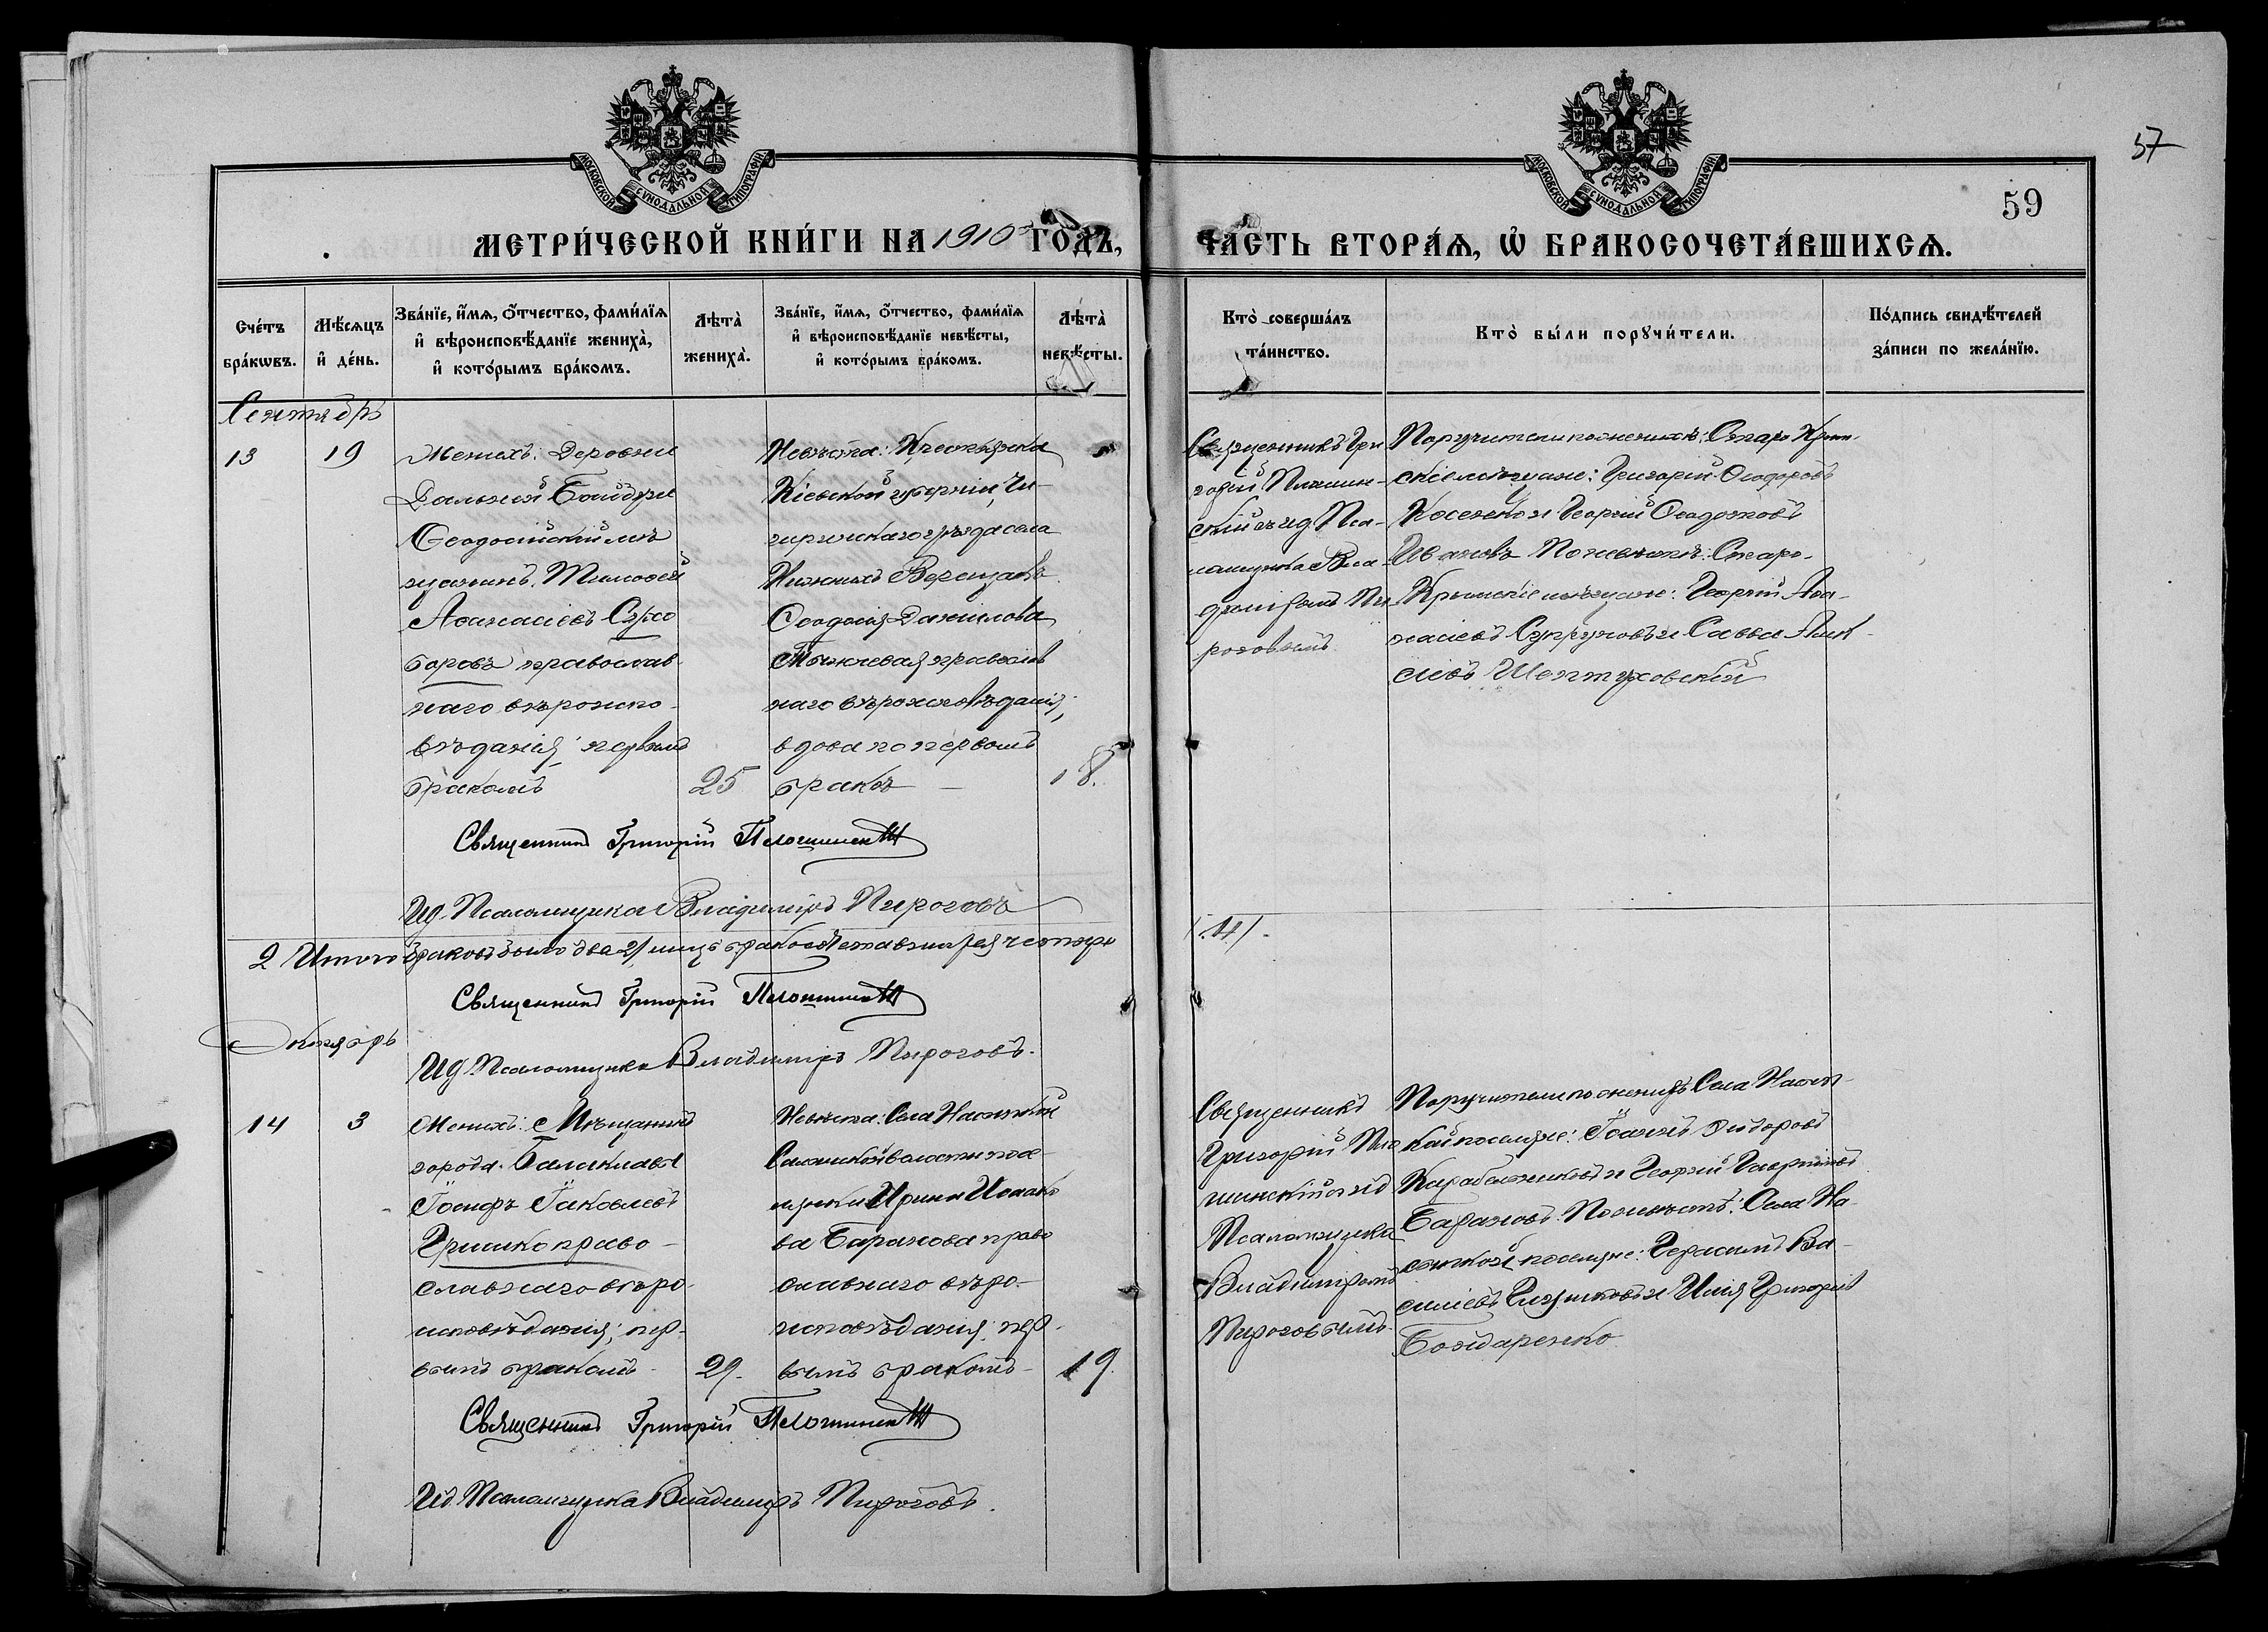 57
59
МОСКОВСКОЙ СУНОДАЛЬНОЙ ТИПОГРАФІИ
МОСКОВСКОЙ СУНОДАЛЬНОЙ ТИПОГРАФІИ
МЕТРИ́ЧЕСКОЙ КНИ́ГИ НА 1910 ГО́ДЪ,
ЧА́СТЬ ВТОРА́Ѧ, Ѡ БРАКОСОЧЕТА́ВШИХСѦ.
Сче́тъ
бра́кѡвъ.
Мѣ́сѧцъ
и҆ де́нь.
Зва́нїе, и҆́мѧ, о҆́тчество, фами́лїѧ
и҆ вѣроисповѣ́данїе жениха̀,
и҆ кото́рымъ бра́комъ.
Лѣта̀
жениха̀.
Зва́нїе, и҆́мѧ, о҆́тчество, фами́лїѧ
и҆ вѣроисповѣ́данїе невѣ́сты,
и҆ кото́рымъ бра́комъ.
Лѣта̀
невѣ́сты.
Кто̀ соверша́лъ
та́инство.
Кто̀ бы́ли порꙋчи́тели.
По́дпись свидѣ́телей
за́писи по жела́нїю.
Сентябрь
13
19
Женихъ: Деревни
Дальней Байбуги
Ѳеодосійскій мѣ
щанинъ Тимоѳей
Аѳанасіевъ Сухо
боровъ православ
наго вѣроиспо-
вѣданія; первымъ
бракомъ
25
Невѣста: Крестьянка
Кіевской губерніи, Чи-
гиринскаго уѣзда села
Ѳеодосія Данилова
православ
наго вѣроисповѣданія;
вдова по первомъ
бракѣ
18.
Священникъ Гри
горій Плашин-
скій съ ид. Пса-
ломщика Вла-
диміромъ Пи
роговымъ
Поручители по женихѣ: Старо Крым-
скіе мѣщане: Григорій Ѳеодоровъ
Косенко и Георгій Ѳеодотовъ
Ивановъ По невѣстѣ: Старо-
Крымскіе мѣщане: Георгій Аѳа-
насіевъ Супруновъ и Савва Алек
сіевъ Шептуховскій
Священникъ Григорій
Ид. Псаломщика Владиміръ Пироговъ
2 Итого браковъ было два 2/ лицъ бракосочетавшихся четыре
/4/.
Священникъ Григорій
Октябрь
Ид. Псаломщика Владиміръ Пироговъ.
14
3
Женихъ: Мѣщанинъ
города Балаклавы
Іосифъ Іаковлевъ
Гришко право-
славнаго вѣро
исповѣданія; пер-
вымъ бракомъ
29.
Невѣста: Села Насыпкой
Салынской волости посе-
лянка Ирина
ва Баранова право
славнаго вѣро-
исповѣданія, пер-
вымъ бракомъ
19.
Священникъ
Григорій Пло
шинскій съ ид
Псаломщика
Владиміромъ
Пироговымъ.
Поручители по женихѣ: Села Насып-
кой поселяне: Іоаннъ Ѳедоровъ
Карабельниковъ и Георгій Гавриловъ
Барановъ. По невѣстѣ: Села На-
сыпкой поселяне: Герасимъ Ва-
силіевъ и Илія Григоріевъ
Бондаренко
Священникъ Григорій
Ид. Псаломщика Владиміръ Пироговъ.